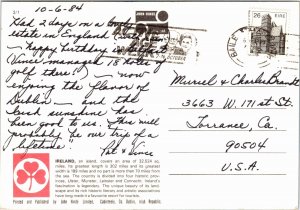 2/1
JOHN HINDE
10-6-84
Had 2 days on a lovely
estate in England
Happy birthday
Vince managed 18 holes of
golf there, now
enjoying the flavor of
Dublin - and the
luck sunshine has
been with us. This will
probably be our trip of a
lifetime"
Pat & Vince
OCTOBER
26 EIRE
Muriel & Charles Brandt
3663 W. 171 st St.
Torrance, Ca.
90504
U.S.A.
IRELAND, an island, covers an area of 32,524 sq.
miles, its greatest length is 302 miles and its greatest
width is 189 miles and no part is more than 70 miles from
the sea. The country is divided into four historic prov-
inces, Ulster, Munster, Leinster and Connacht. Ireland's
fascination is legendary. The unique beauty of its land-
scape and its rich historic literary and artistic associations
have long made it a favourite resort for discerning visitors.
Printed and Published by John Hinde Limited, Cabinteely, Co. Dublin, Irish Republic.